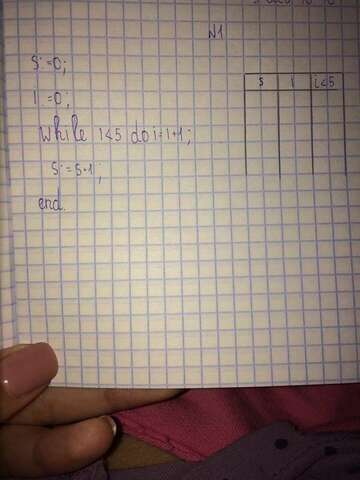 N1
S:=0;
i:=0;
while i<5 do i=i+1;
S:=s+1;
end.
s i i<5